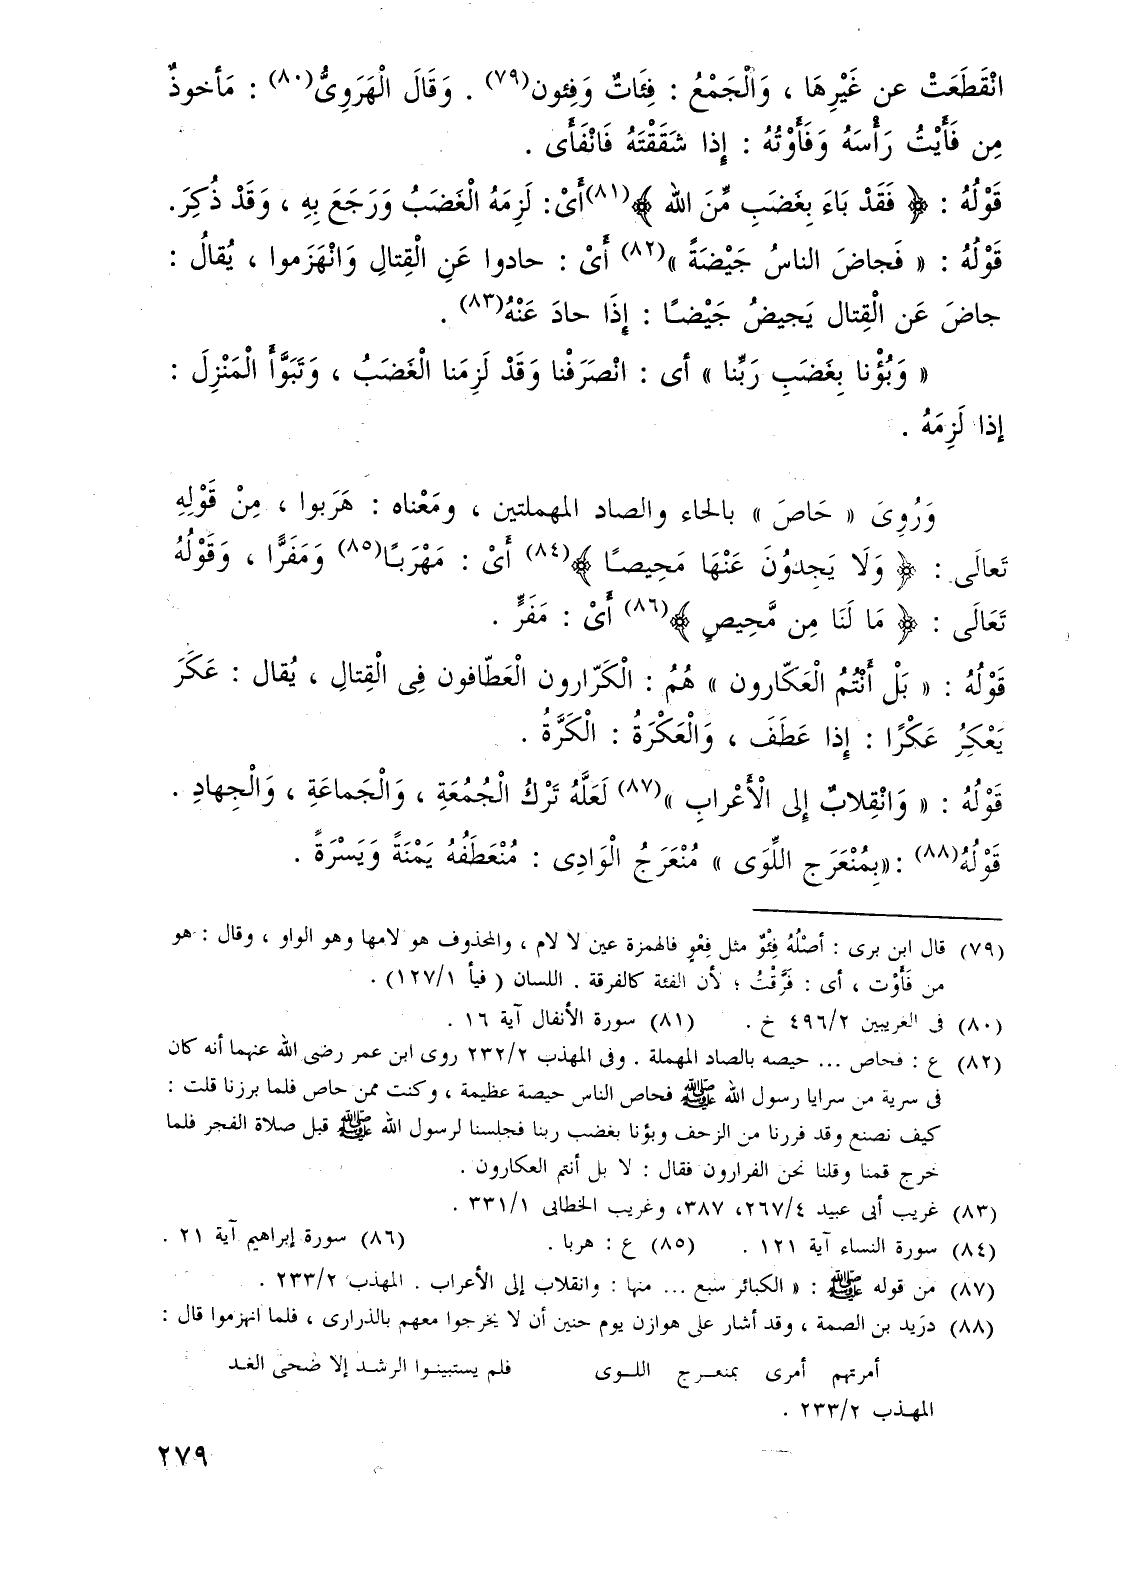 انْقَطَعَتْ عن غَيْرِهَا ، وَالْجَمْعُ : فِئَاتٌ وَفِئون(٧٩) . وَقَالَ الْهَرَوِىُّ(٨٠) : مَأخوذٌ
مِن فَأَيْتُ رَأْسَهُ وَفَأَوْتُهُ : إِذا شَقَقْتَهُ فَانْفَأَى .
قَوْلُهُ : ﴿ فَقَدْ بَاءَ بِغَضَبٍ مِّنَ الله ﴾(٨١)أَىْ: لَزِمَهُ الْغَضَبُ وَرَجَعَ بِهِ ، وَقَدْ ذُكِرَ.
قَوْلُهُ : « فَجاضَ الناسُ جَيْضَةً »(٨٢) أَىْ : حادوا عَنِ الْقِتالِ وَانْهَزَموا ، يُقالُ :
جاضَ عَن الْقِتال يَجيضُ جَيْضًا : إِذَا حادَ عَنْهُ(٨٣) .
« وَبُؤْنا بِغَضَبِ رَبِّنا » أى : انْصَرَفْنا وَقَدْ لَزِمَنا الْغَضَبُ ، وَتَبَوَّأَ الْمَنْزِلَ :
إذا لَزِمَهُ .
وَرُوِىَ « حَاصَ » بالحاء والصاد المهملتين ، ومَعْناه : هَرَبوا ، مِنْ قَوْلِهِ
تَعالَى : ﴿ وَلَا يَجِدوُنَ عَنْهَا مَحِيصًا ﴾(٨٤) أَىْ : مَهْرَبًا(٨٥) وَمَفَرًّا ، وَقَوْلُهُ
تَعَالَى : ﴿ مَا لَنَا مِن مَّحِيصٍ ﴾(٨٦) أَىْ : مَفَرٍّ .
قَوْلُهُ : « بَلْ أَنْتُمُ الْعَكّارون » هُمُ : الْكَرّارون الْعَطّافون فِى الْقِتالِ ، يُقال : عَكَرَ
يَعْكِرُ عَكْرًا : إِذا عَطَفَ ، وَالْعَكْرَةُ : الْكَرَّةُ .
قَوْلُهُ : « وَانْقِلابٌ إِلى الْأَعْرابِ »(٨٧) لَعَلَّهُ تَرْكُ الْجُمُعَةِ ، وَالْجَماعَةِ ، وَالْجِهادِ .
قَوْلُهُ(٨٨) :«بِمُنْعَرَجِ اللِّوَى » مُنْعَرَجُ الْوَادِى : مُنْعَطَفُهُ يَمْنَةً وَيَسْرَةً .
(٧٩) قال ابن برى : أصْلُهُ فِئْوٌ مثل فِعْوٍ فالهمزة عين لا لام ، والمحذوف هو لامها وهو الواو ، وقال : هو
من فَأَوْت ، أى : فَرَّقْتُ ؛ لأن الفئة كالفرقة . اللسان ( فيأ ١٢٧/١) .
(٨٠) فى الغريبين ٤٩٦/٢ خ . (٨١) سورة الأنفال آية ١٦ .
(٨٢) ع : فحاص ... حيصه بالصاد المهملة . وفى المهذب ٢٣٢/٢ روى ابن عمر رضى الله عنهما أنه كان
فى سرية من سرايا رسول الله ﷺ فحاص الناس حيصة عظيمة ، وكنت ممن حاص فلما برزنا قلت :
كيف نصنع وقد فررنا من الزحف وبؤنا بغضب ربنا فجلسنا لرسول الله ﷺ قبل صلاة الفجر فلما
خرج قمنا وقلنا نحن الفرارون فقال : لا بل أنتم العكارون .
(٨٣) غريب أبى عبيد ٢٦٧/٤، ٣٨٧، وغريب الخطابى ٣٣١/١ .
(٨٤) سورة النساء آية ١٢١ . (٨٥) ع : هربا . (٨٦) سورة إبراهيم آية ٢١ .
(٨٧) من قوله ﷺ : « الكبائر سبع ... منها : وانقلاب إلى الأعراب . المهذب ٢٣٣/٢ .
(٨٨) دريد بن الصمة ، وقد أشار على هوازن يوم حنين أن لا يخرجوا معهم بالذرارى ، فلما انهزموا قال :
أمرتهم أمرى بمنعـرج اللـوى فلم يستبينـوا الرشـد إلا ضحى الغـد
المهذب ٢٣٣/٢ .
٢٧٩